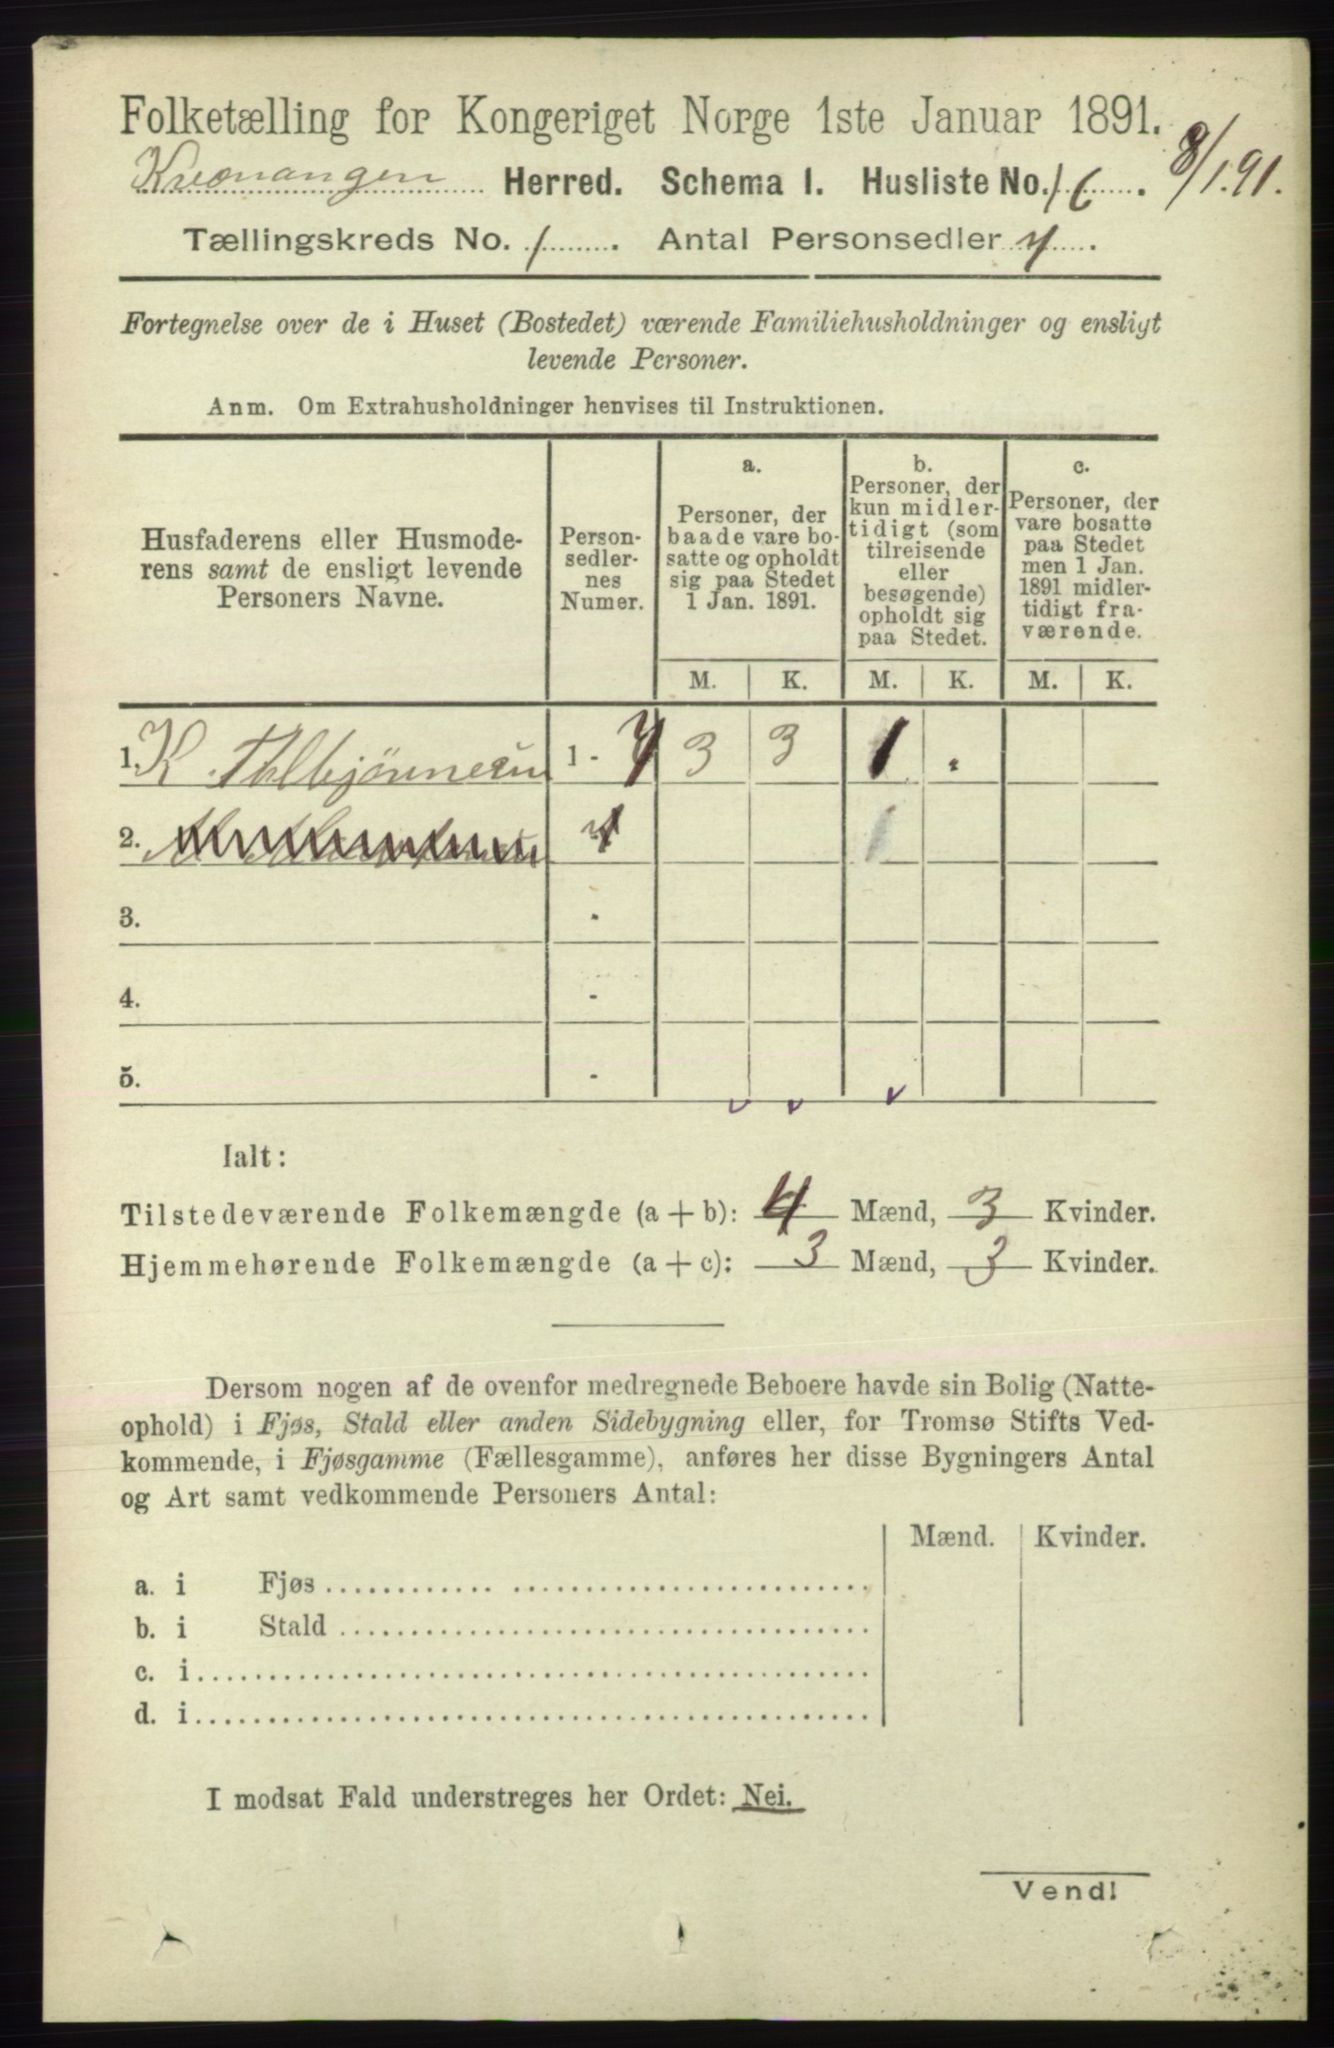 Folketælling for Kongeriget Norge 1ste Januar 1891.
Kvænangen Herred. Schema I. Husliste No. 16. 8/1.91.
Tællingskreds No. 1. Antal Personsedler 7.
Fortegnelse over de i Huset (Bostedet) værende Familiehusholdninger og ensligt
levende Personer.
Anm. Om Extrahusholdninger henvises til Instruktionen.
Husfaderens eller Husmode-
rens samt de ensligt levende
Personers Navne.
Person-
sedler-
nes
Numer.
a.
Personer, der
baade vare bo-
satte og opholdt
sig paa Stedet
1 Jan. 1891.
b.
Personer, der
kun midler-
tidigt (som
tilreisende
eller
besøgende)
opholdt sig
paa Stedet.
c.
Personer, der
vare bosatte
paa Stedet
men 1 Jan.
1891 midler-
tidigt fra-
værende.
M. K. M. K. M. K.
1. K. 1 - 7 3 3 1 .
2.
3. -
4. -
5. -
Ialt:
Tilstedeværende Folkemængde (a + b): 4 Mænd, 3 Kvinder.
Hjemmehørende Folkemængde (a + c): 3 Mænd, 3 Kvinder.
Dersom nogen af de ovenfor medregnede Beboere havde sin Bolig (Natte-
ophold) i Fjøs, Stald eller anden Sidebygning eller, for Tromsø Stifts Ved-
kommende, i Fjøsgamme (Fællesgamme), anføres her disse Bygningers Antal
og Art samt vedkommende Personers Antal:
Mænd. Kvinder.
a. i Fjøs
b. i Stald
c. i
d. i
I modsat Fald understreges her Ordet: Nei.
Vend!